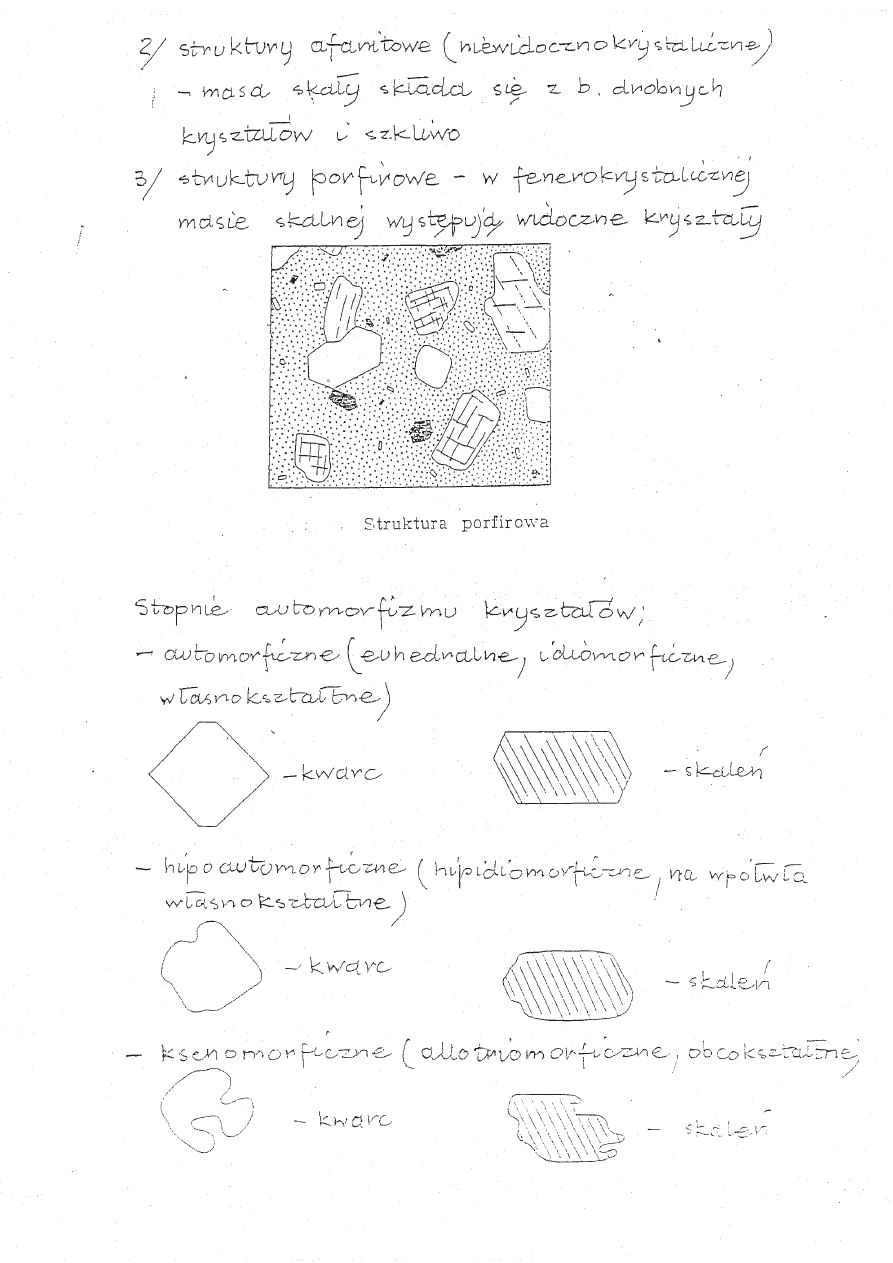 2/ struktury afanitowe (niewidocznokrystaliczne)
- masa skały składa się z b. drobnych
kryształów i szkliwo
3/ struktury porfirowe - w fenerokrystalicznej
masie skalnej występują widoczne kryształy
Struktura porfirowa
Stopnie automorfizmu kryształów;
- automorficzne (euhedralne, idiomorficzne,
własnokształtne)
- kwarc - skaleń
- hipoautomorficzne (hipidiomorficzne, na wpółwła
własnokształtne)
- kwarc - skaleń
- ksenomorficzne (allotriomorficzne, obcokształtne)
- kwarc - skaleń